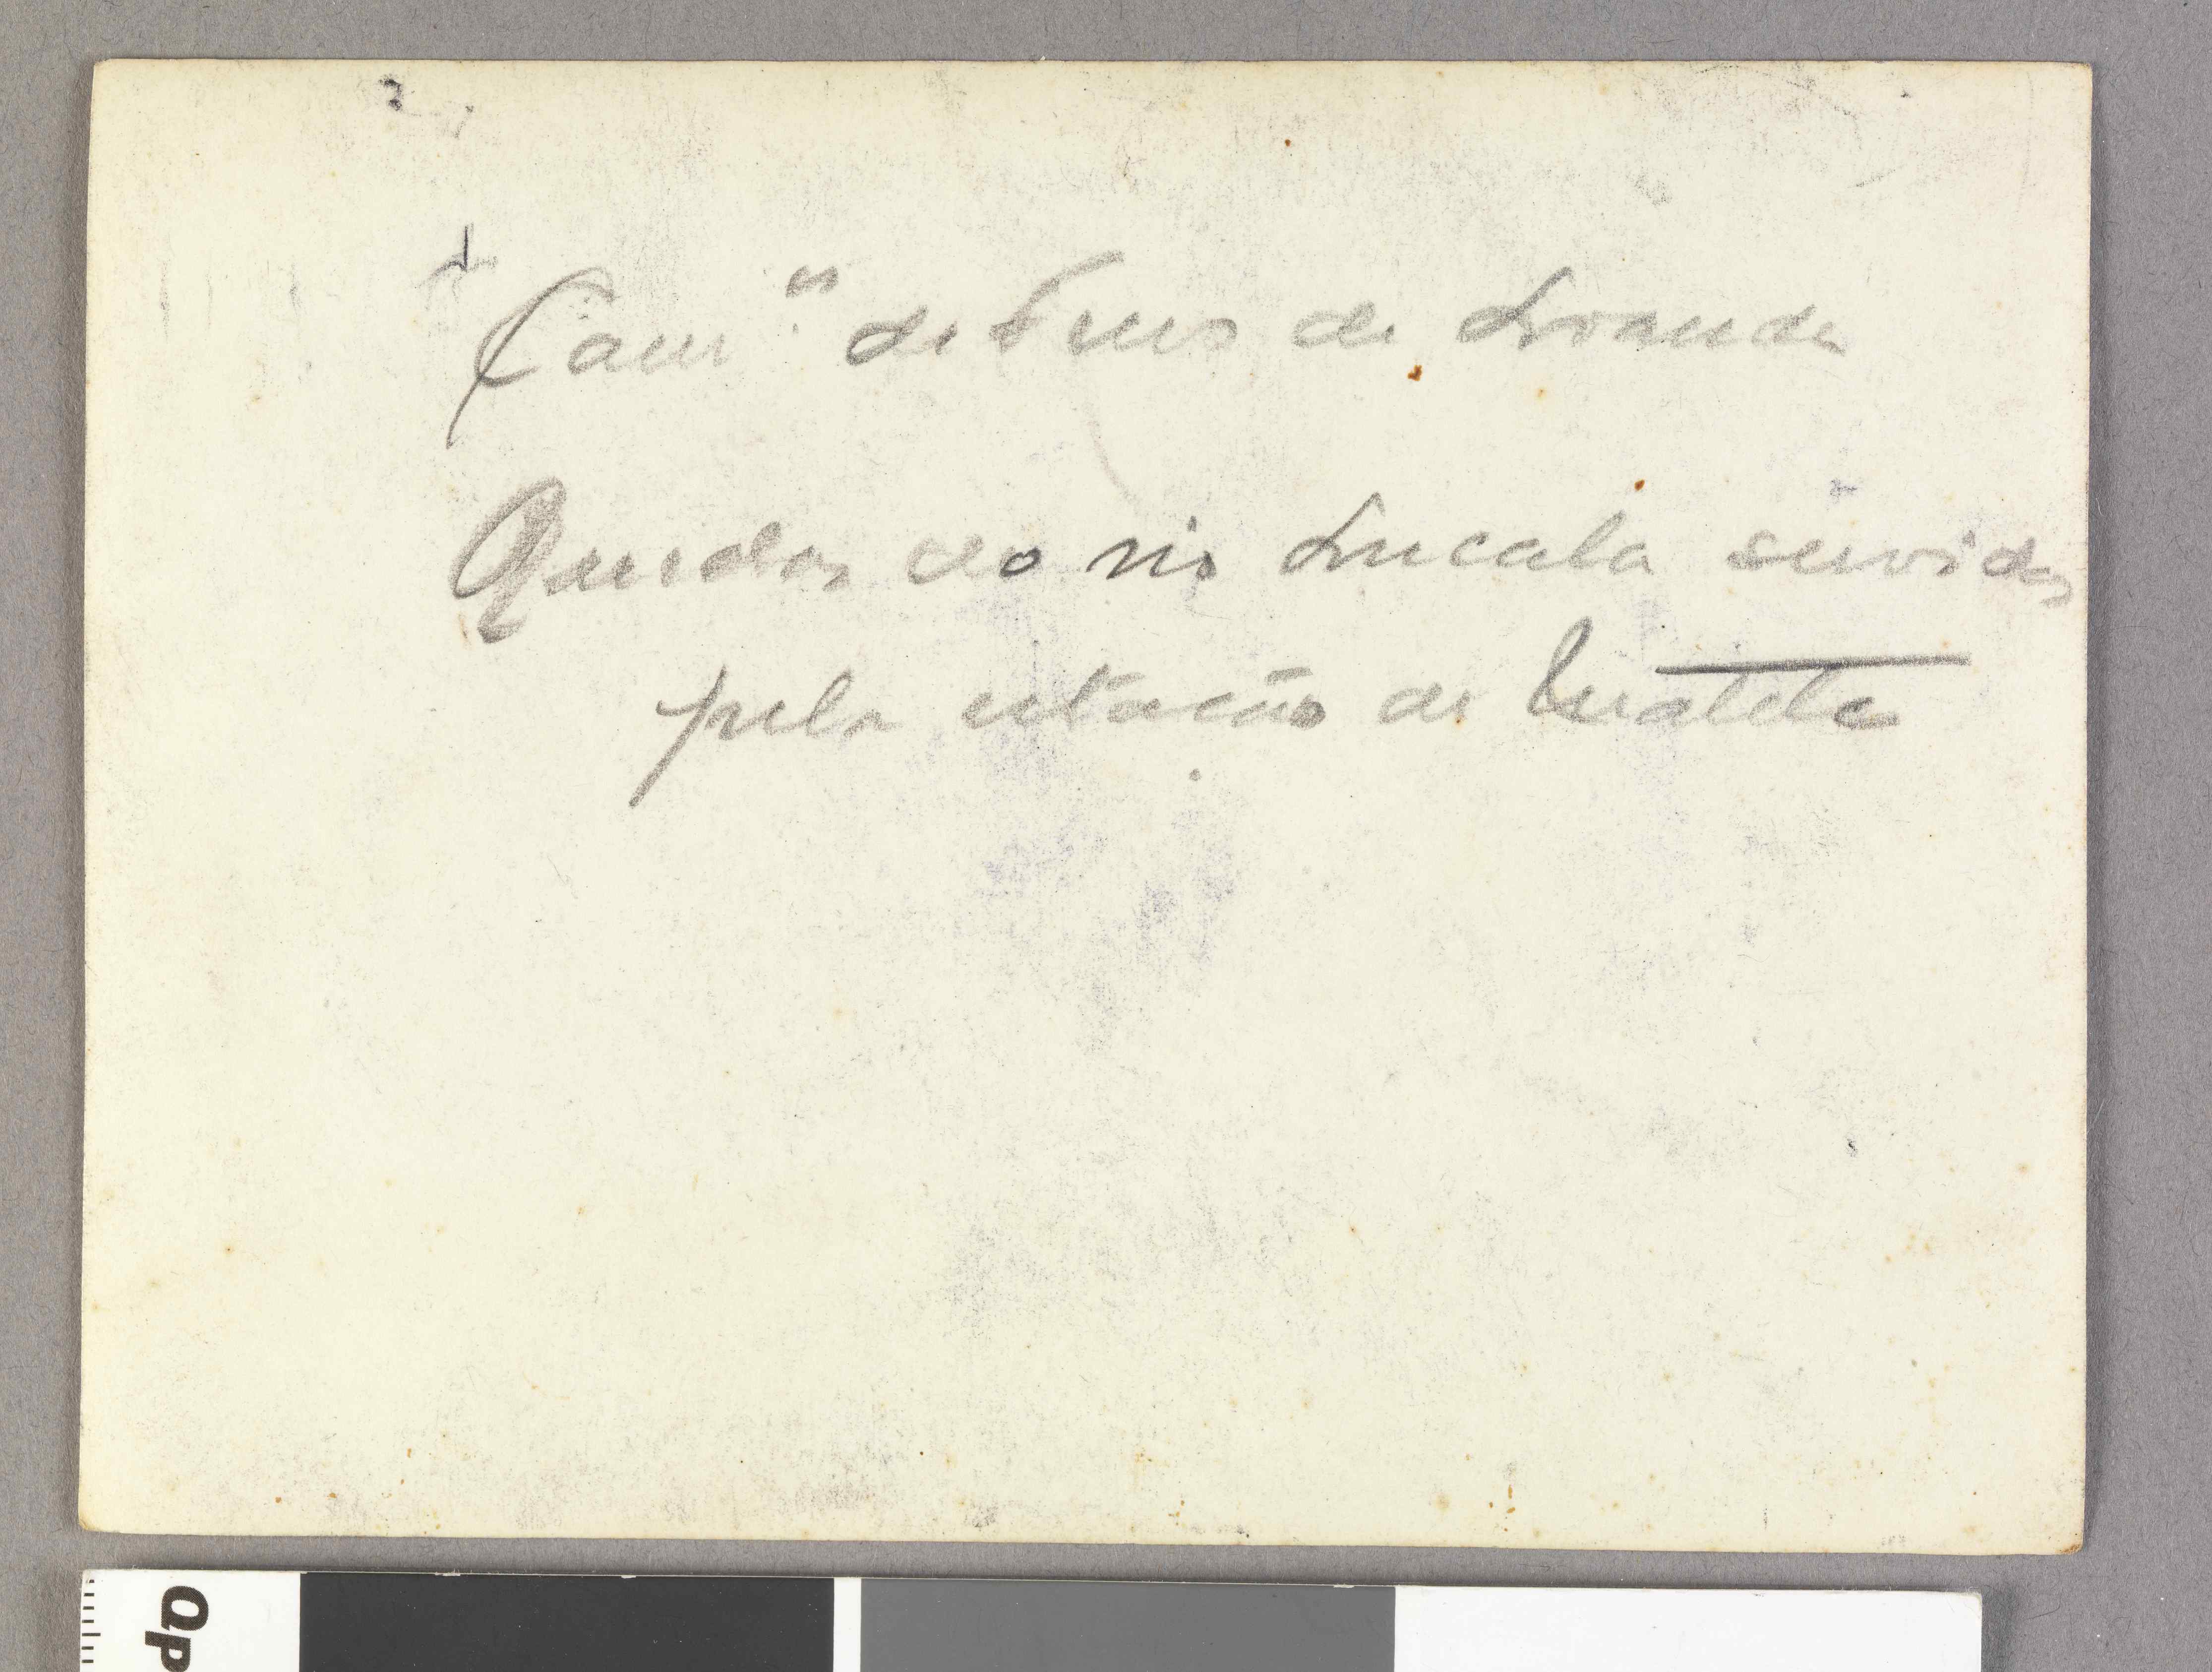 Cam.os de Ferro de Loanda
Quedas do rio Lucala servidas
pela estação de Quatete
QP